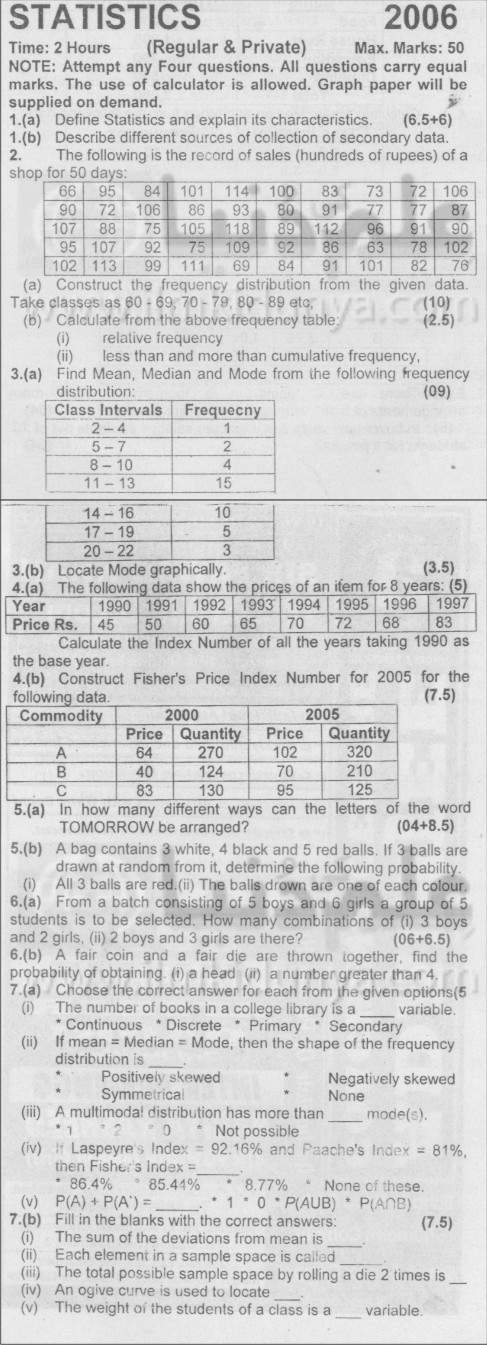 STATISTICS 2006
Time: 2 Hours (Regular & Private) Max. Marks: 50
NOTE: Attempt any Four questions. All questions carry equal
marks. The use of calculator is allowed. Graph paper will be
supplied on demand.
1.(a) Define Statistics and explain its characteristics. (6.5+6)
1.(b) Describe different sources of collection of secondary data.
2. The following is the record of sales (hundreds of rupees) of a
shop for 50 days:
66 95 84 101 114 100 83 73 72 106
90 72 106 86 93 80 91 77 77 87
107 88 75 105 118 89 112 96 91 90
95 107 92 75 109 92 86 63 78 102
102 113 99 111 69 84 91 101 82 76
(a) Construct the frequency distribution from the given data.
Take classes as 60 - 69, 70 - 79, 80 - 89 etc, (10)
(b) Calculate from the above frequency table: (2.5)
(i) relative frequency
(ii) less than and more than cumulative frequency,
3.(a) Find Mean, Median and Mode from the following frequency
distribution: (09)
Class Intervals Frequecny
2 – 4 1
5 – 7 2
8 – 10 4
11 – 13 15
14 – 16 10
17 – 19 5
20 – 22 3
3.(b) Locate Mode graphically. (3.5)
4.(a) The following data show the prices of an item for 8 years: (5)
Year 1990 1991 1992 1993 1994 1995 1996 1997
Price Rs. 45 50 60 65 70 72 68 83
Calculate the Index Number of all the years taking 1990 as
the base year.
4.(b) Construct Fisher's Price Index Number for 2005 for the
following data. (7.5)
Commodity 2000 2005
Price Quantity Price Quantity
A 64 270 102 320
B 40 124 70 210
C 83 130 95 125
5.(a) In how many different ways can the letters of the word
TOMORROW be arranged? (04+8.5)
5.(b) A bag contains 3 white, 4 black and 5 red balls. If 3 balls are
drawn at random from it, determine the following probability.
(i) All 3 balls are red.(ii) The balls drown are one of each colour.
6.(a) From a batch consisting of 5 boys and 6 girls a group of 5
students is to be selected. How many combinations of (i) 3 boys
and 2 girls, (ii) 2 boys and 3 girls are there? (06+6.5)
6.(b) A fair coin and a fair die are thrown together, find the
probability of obtaining. (i) a head (ii) a number greater than 4.
7.(a) Choose the correct answer for each from the given options(5
(i) The number of books in a college library is a ____ variable.
* Continuous * Discrete * Primary * Secondary
(ii) If mean = Median = Mode, then the shape of the frequency
distribution is ____.
* Positively skewed * Negatively skewed
* Symmetrical * None
(iii) A multimodal distribution has more than ____ mode(s).
* 1 * 2 * 0 * Not possible
(iv) If Laspeyre's Index = 92.16% and Paache's Index = 81%,
then Fisher's Index =____.
* 86.4% * 85.44% * 8.77% * None of these.
(v) P(A) + P(A') = ____. * 1 * 0 * P(AUB) * P(A∩B)
7.(b) Fill in the blanks with the correct answers: (7.5)
(i) The sum of the deviations from mean is ____.
(ii) Each element in a sample space is called ____.
(iii) The total possible sample space by rolling a die 2 times is __
(iv) An ogive curve is used to locate ___.
(v) The weight of the students of a class is a ___ variable.